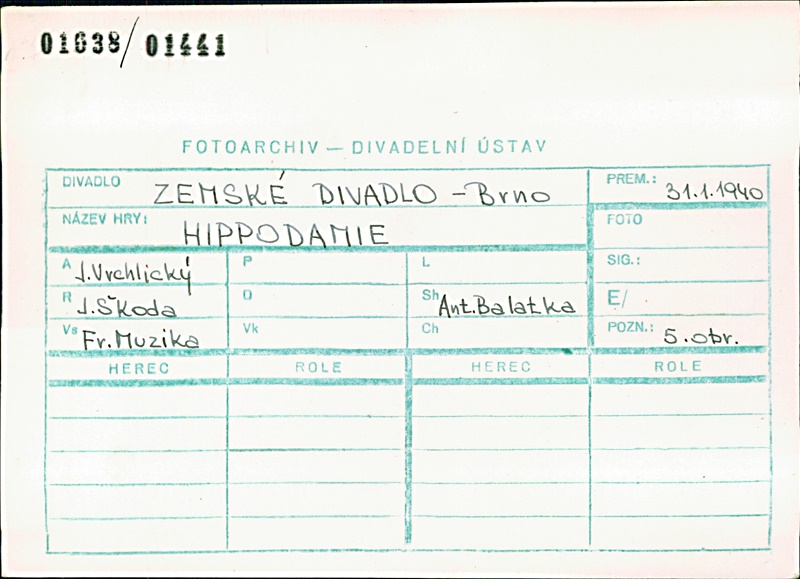 01638/01441
FOTOARCHIV – DIVADELNÍ ÚSTAV
DIVADLO ZEMSKÉ DIVADLO – Brno
PREM.: 31.1.1940
NÁZEV HRY: HIPPODAMIE
FOTO
A J.Vrchlický P L SIG.:
R J.Škoda O Sh Ant.Balatka E/
Vs Fr.Muzika Vk Ch POZN.: 5.obr.
HEREC ROLE HEREC ROLE